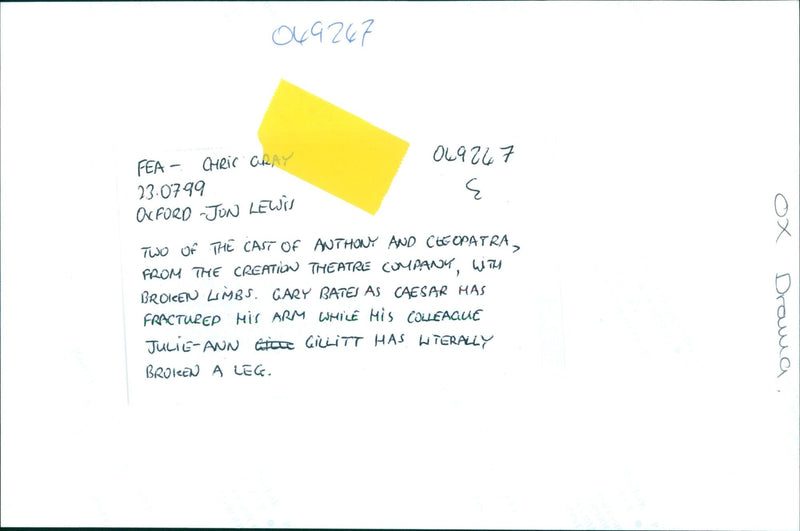 049247
FEA - CHRIS GRAY
049247
23.07.99
OXFORD - JON LEWIS
TWO OF THE CAST OF ANTHONY AND CLEOPATRA,
FROM THE CREATION THEATRE COMPANY, WITH
BROKEN LIMBS. GARY BATES AS CAESAR HAS
FRACTURED HIS ARM WHILE HIS COLLEAGUE
JULIE-ANN GILLITT HAS LITERALLY
BROKEN A LEG.
OX Drama.